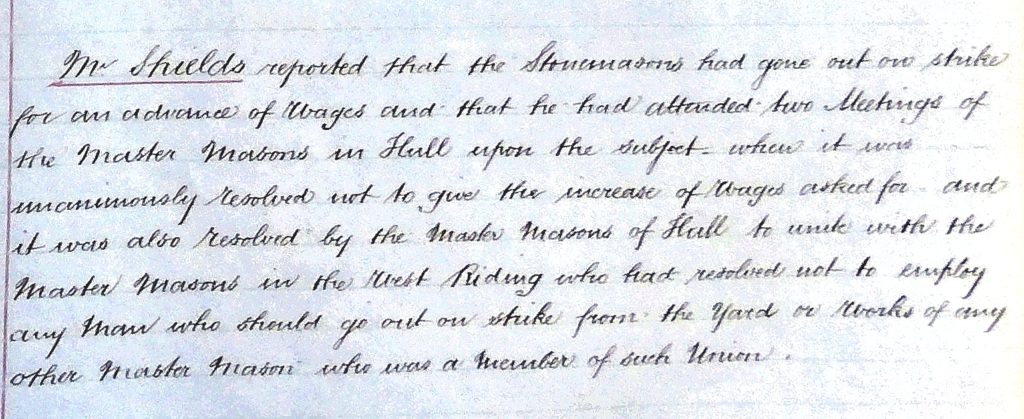 Mr Shields reported that the Stonemasons had gone out on strike
for an advance of Wages and that he had attended two Meetings of
the Master Masons in Hull upon the subject - when it was
unanimously resolved not to give the increase of Wages asked for - and
it was also resolved by the Master Masons of Hull to unite with the
Master Masons in the West Riding who had resolved not to employ
any Man who should go out on strike from the Yard or Works of any
other Master Mason who was a Member of such Union.